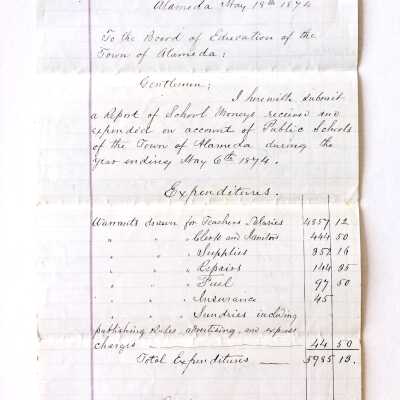 Alameda May 18th 1874
To the Board of Education of the
Town of Alameda;
Gentlemen;
I herewith submit
a Report of School Moneys received and
expended on account of Public Schools
of the Town of Alameda during the
year ending May 6th 1874.
Expenditures.
Warrants drawn for Teachers Salaries 4557 12
" " " Clerk and Janitor 444 50
" " " Supplies 352 16
" " " Repairs 144 35
" " " Fuel 97 50
" " " Insurance 45
" " " Sundries including
publishing Rules advertising, and express
charges 44 50
Total Expenditures 5985 13.